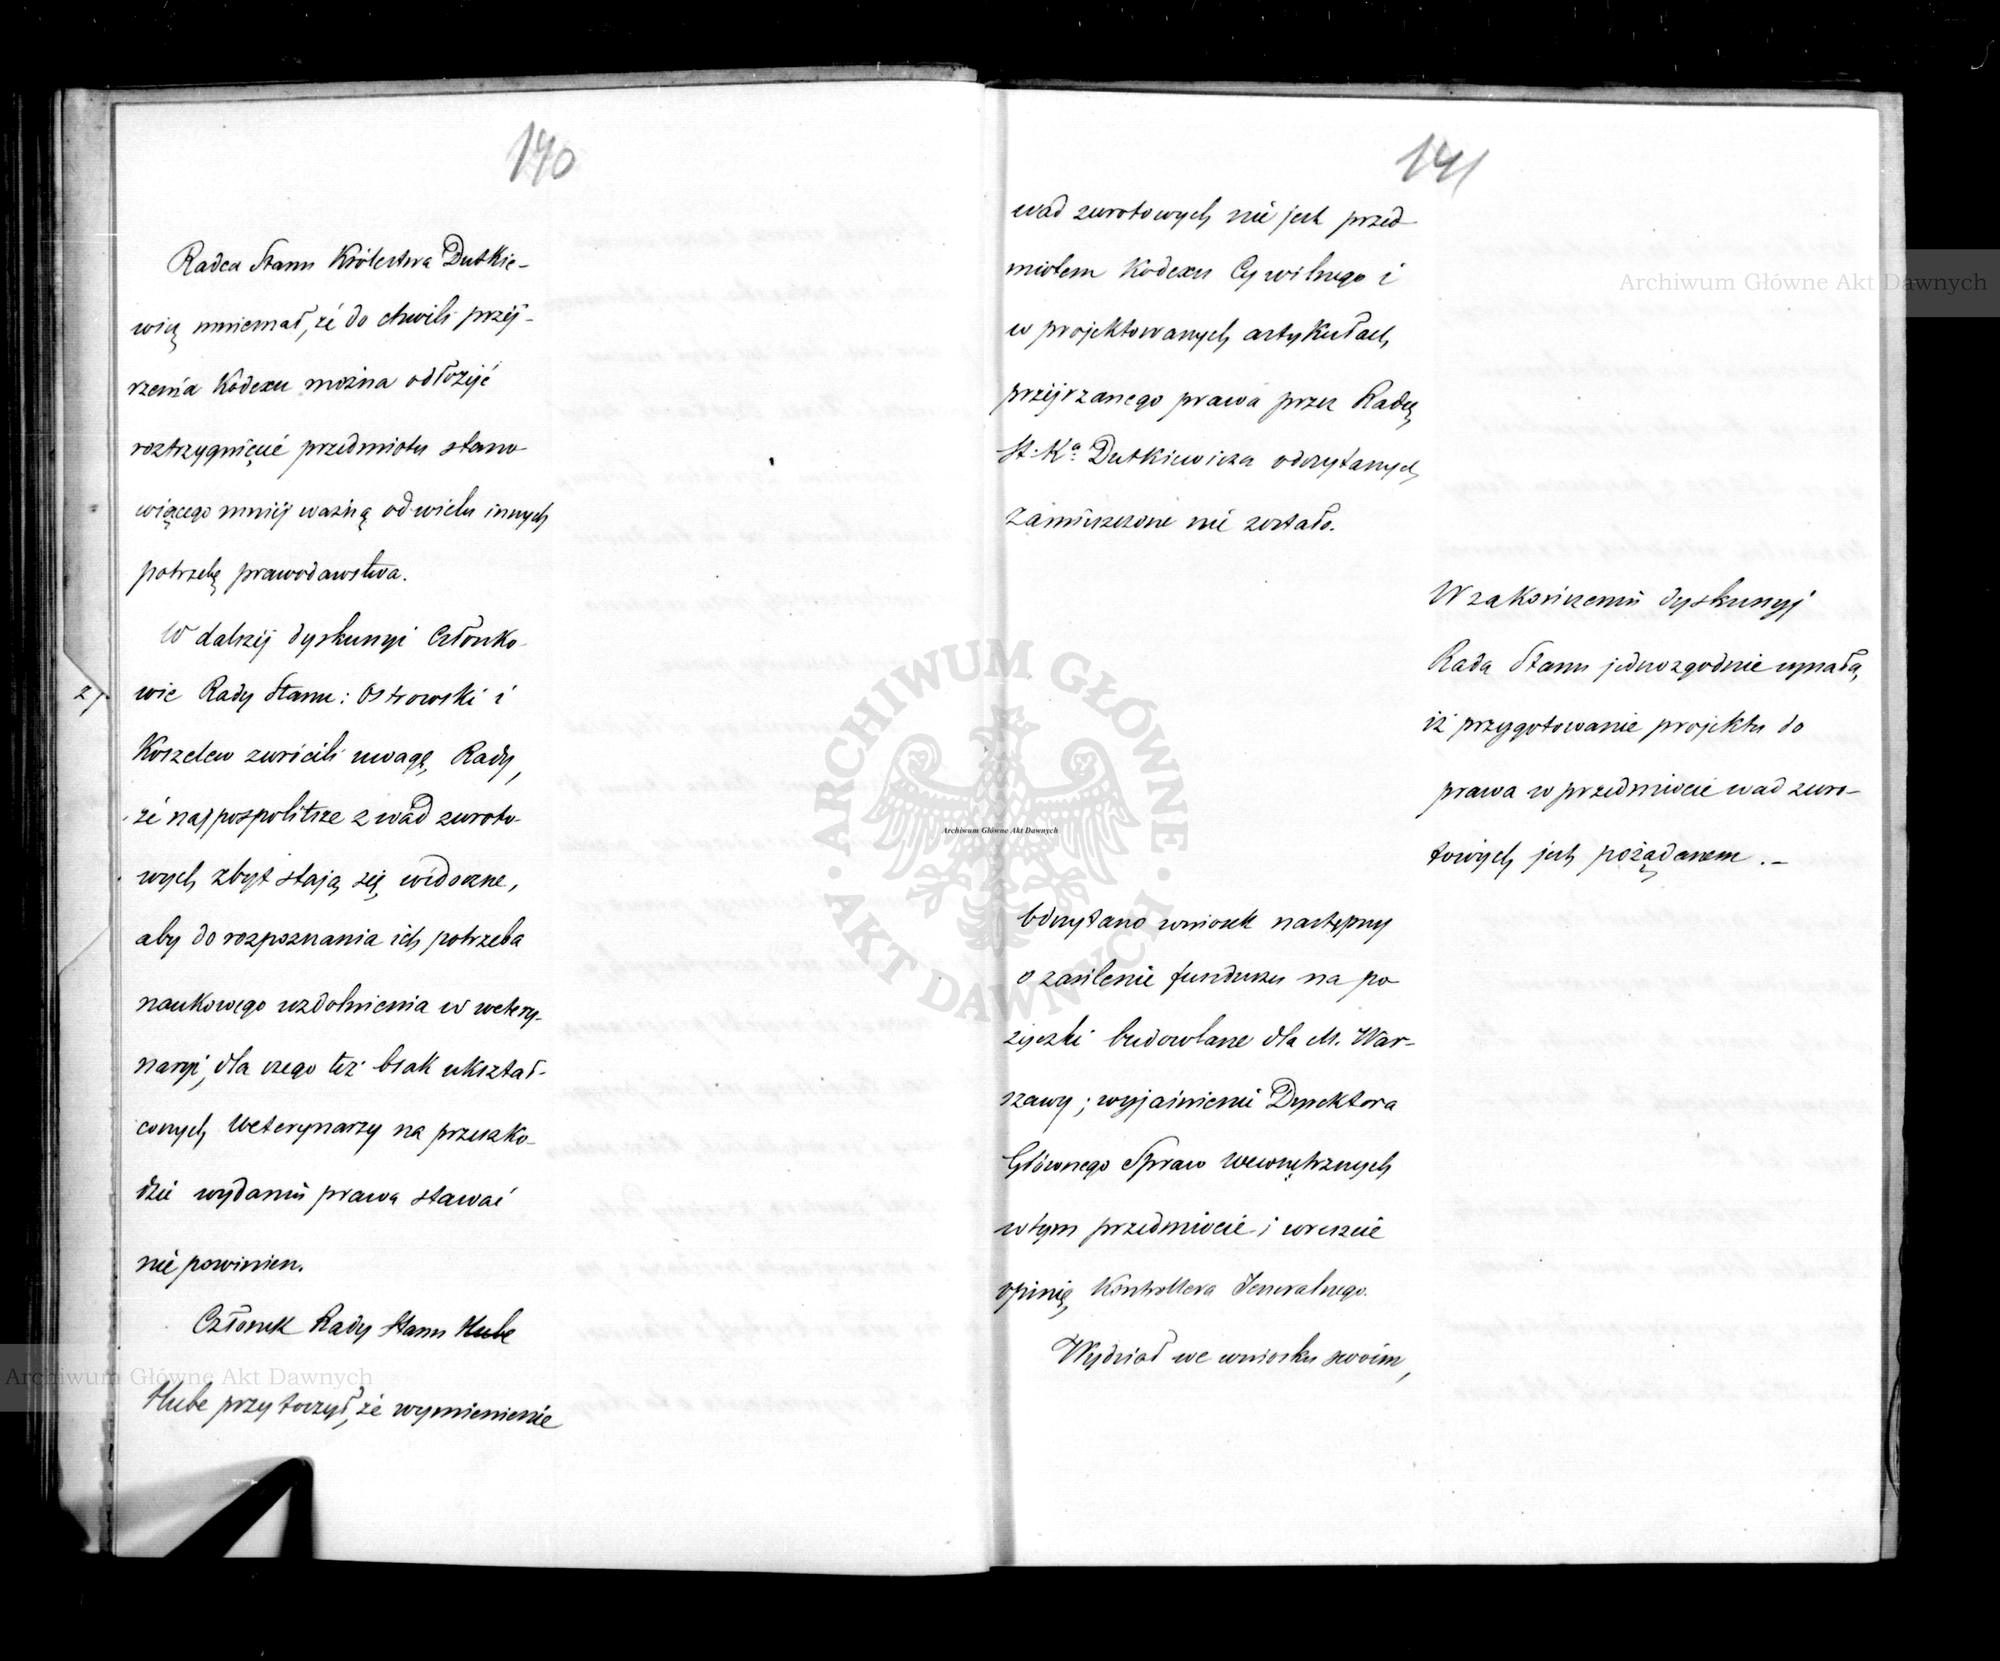 140
Radca Stanu Królestwa Dutkie-
wicz mniemał, że do chwili przej-
rzenia Kodexu można odłożyć
roztrzygnięcie przedmiotu stano-
wiącego mniej ważną od wielu innych
potrzebę prawodawstwa.
W dalszej dyskussyi Członko-
27. wie Rady Stanu: Ostrowski i
Koszelew zwrócili uwagę Rady,
że najpospolitsze z wad zwroto-
wych zbyt stają się widoczne,
aby do rozpoznania ich potrzeba
naukowego uzdolnienia w wetery-
naryi, dla czego też brak ukształ-
conych Weterynarzy na przeszko-
dzie wydaniu prawa stawać
nie powinien.
Członek Rady Stanu Hube
Hube przytoczył, że wymienienie
141
wad zwrotowych nie jest przed-
miotem Kodexu Cywilnego i
w projektowanych artykułach
przejrzanego prawa przez Radcę
St: Kᵃ: Dutkiewicza odczytanych
zamieszczone nie zostało.
W zakończeniu dyskussyj
Rada Stanu jednozgodnie uznała,
iż przygotowanie projektu do
prawa w przedmiocie wad zwro-
towych jest pożądanem.-
Odczytano wniosek następny
o zasilenie funduszu na po
życzki budowlane dla M. War-
szawy; wyjaśnienie Dyrektora
Głównego Spraw Wewnętrznych
w tym przedmiocie i wreszcie
opinię Kontrollera Jeneralnego.
Wydział we wniosku swoim,
Archiwum Główne Akt Dawnych
Archiwum Główne Akt Dawnych
Archiwum Główne Akt Dawnych
ARCHIWUM GŁÓWNE
AKT DAWNYCH